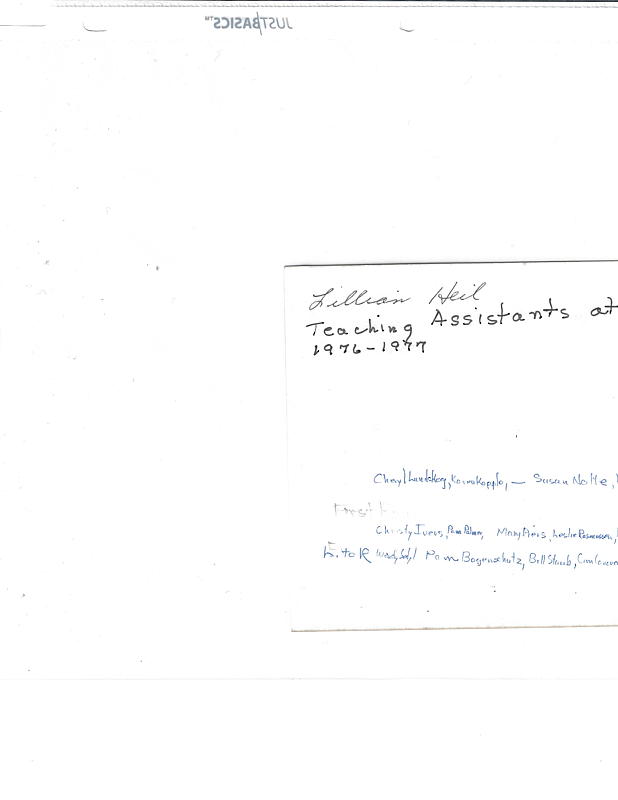 JUSTBASICS™
Lillian Heil
Teaching Assistants at
1976-1977
Cheryl Lundskog, — Susan Nolte,
Front
Christy Ivers, Pam Palmer, Mary Piers, Leslie Rasmussen,
L. to R Pam Bogenschutz, Bill Staub,